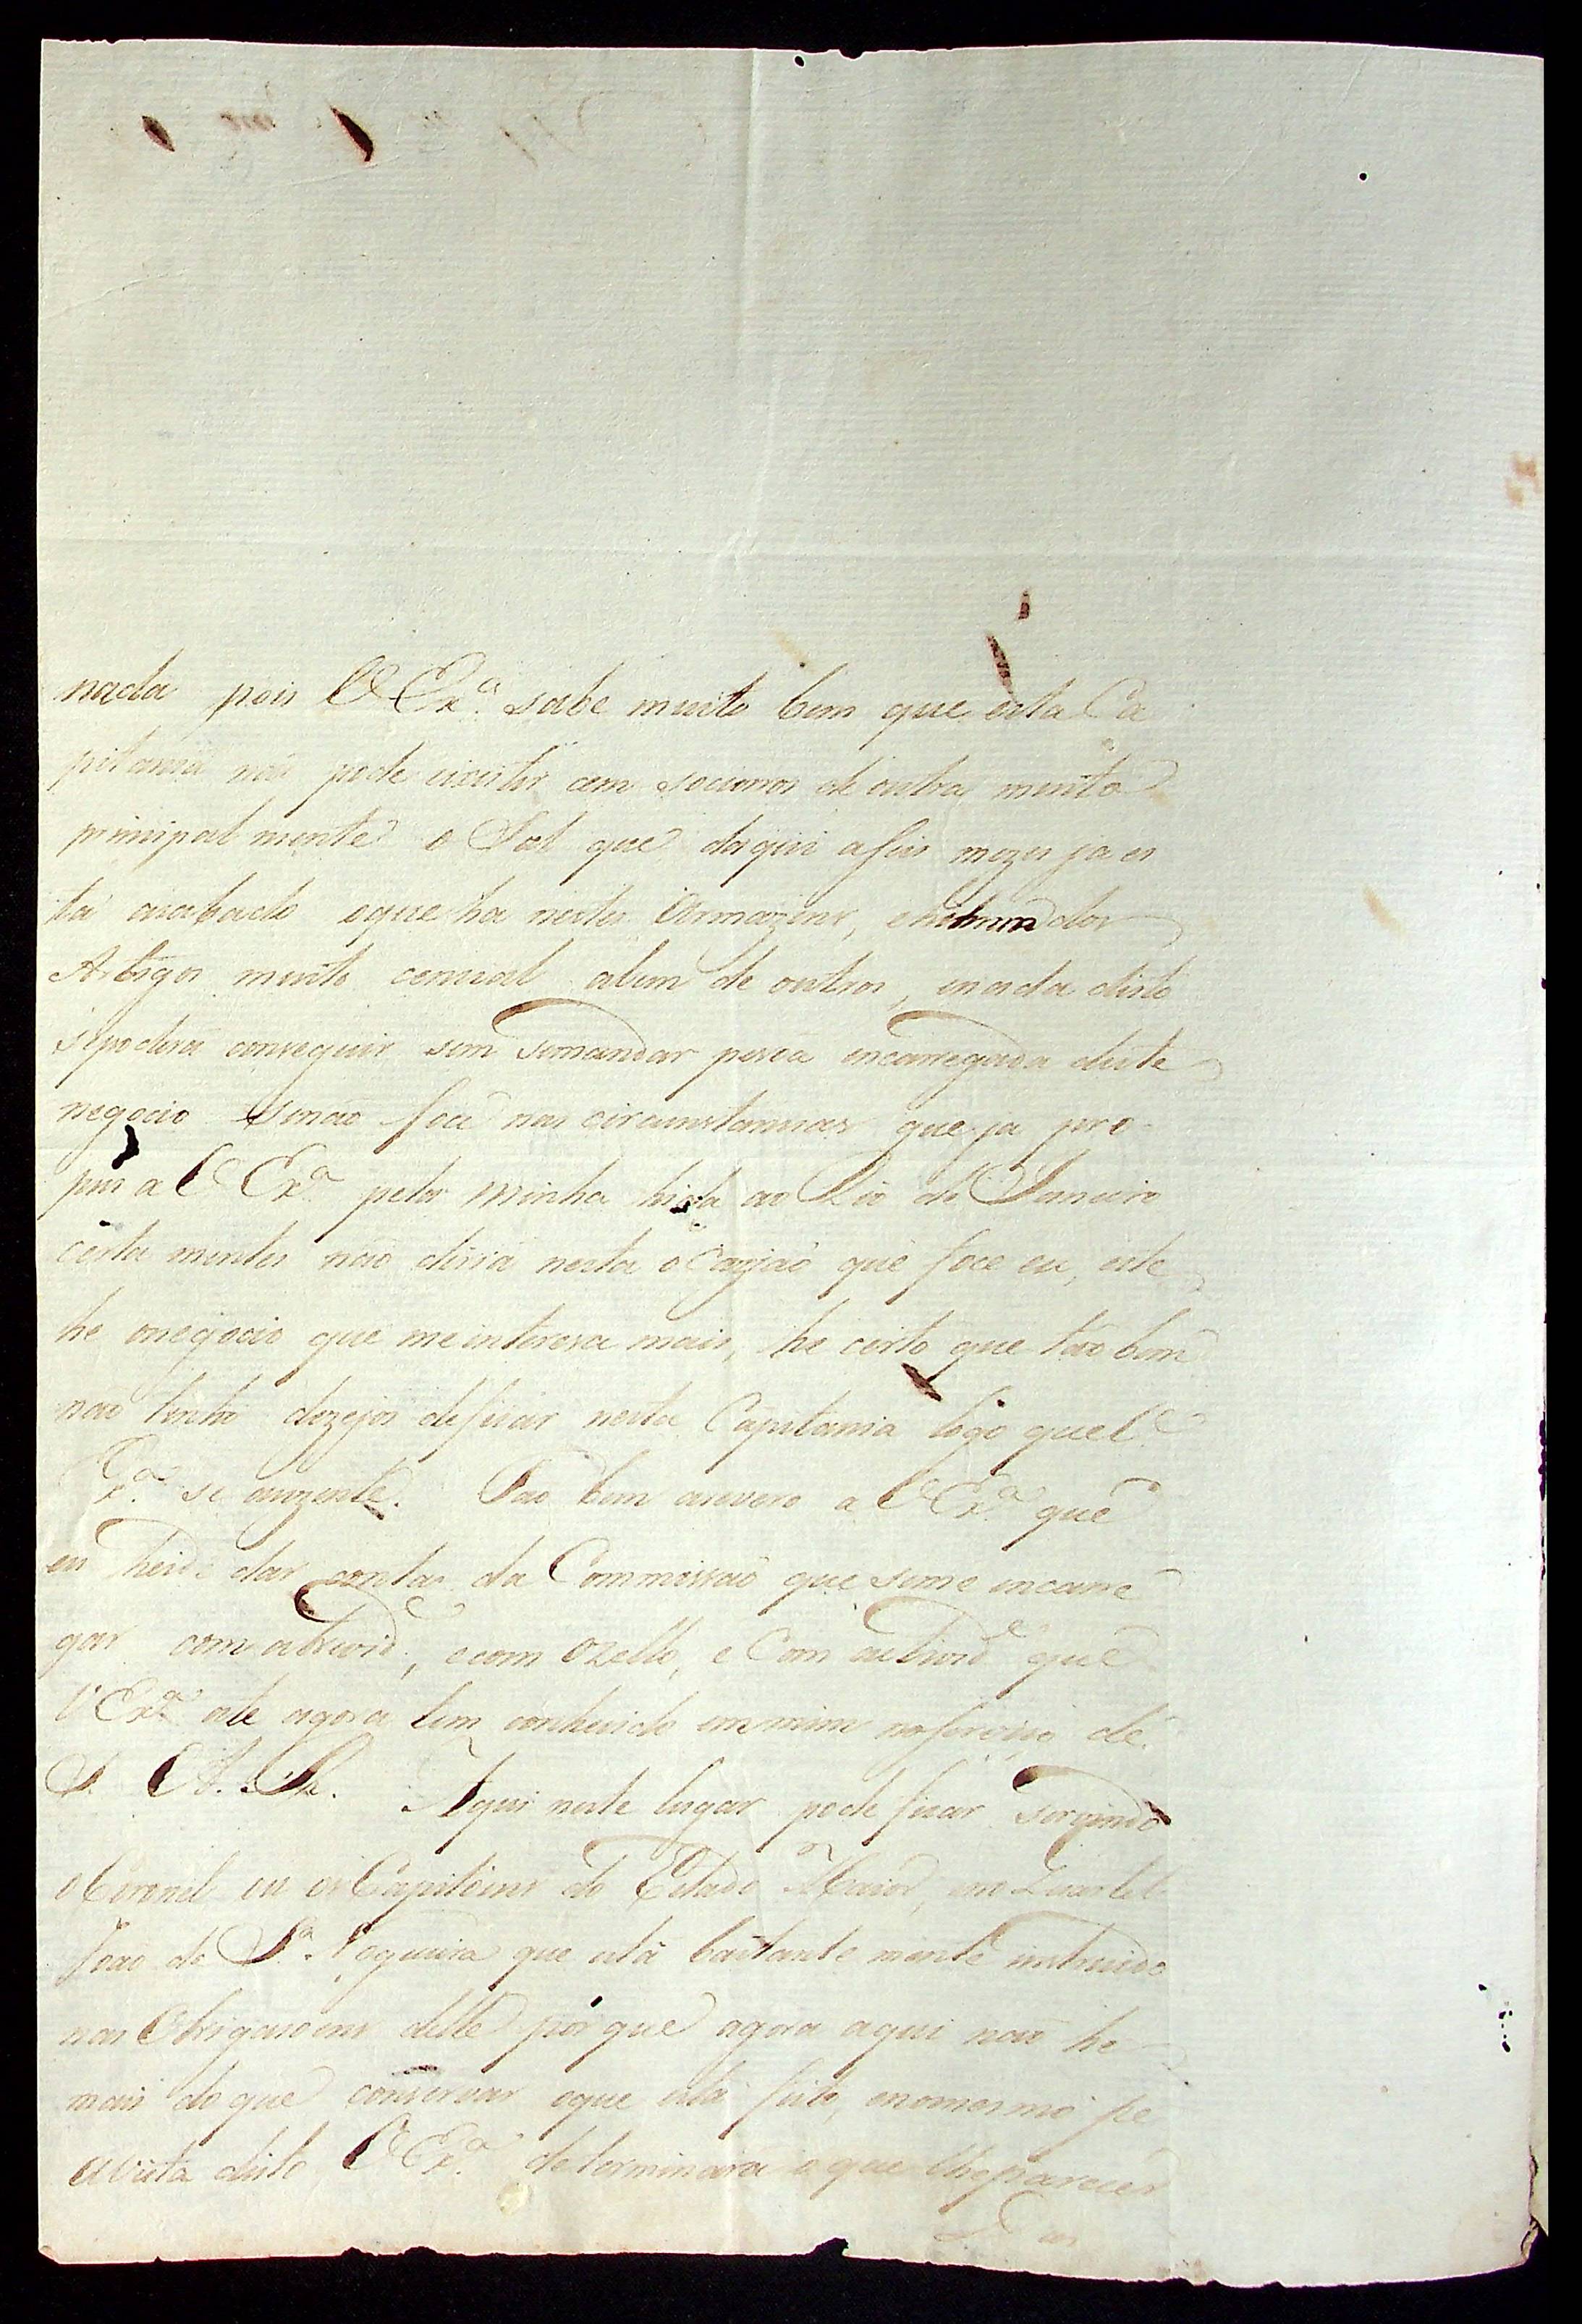 nada pois V Exª. sabe muito bem que esta Ca
pitania não pode existir cem socorros de outra muito
principal mente o Sal que daqui a seis mezes ja es
tá acabado oque ha nestes Armazens, e he hum dos
Artigos muito cencial alem de outros, enada disto
sepoderá conseguir sem semandar pesoa encarregada deste
negocio Senão foce nas circunstancias que ja pro-
puis a V Exª. pela minha hida ao Rio de Janeiro
certa mentes não diria nesta ocazião que foce eu, este
he onegocio que meinteresa mais, he certo que tão bem
não tenho dezejos deficar nesta Capitania logo que V
Exª. se auzente. Tão bem asevero a V Exª. que
eu heide dar conta da Commissão que seme encarre
gar com abrevidᵉ, ecom ozello, e com actividᵉ que
V Exª. ate agora tem conhecido em mim noserviço de
S. A. R. Aqui neste lugar pode ficar servindo
o Coronel ou os Capitoins do Estado Maior, eno Quartel
João de Sª. Nogueira que está bastante mente instruido
nas Obrigasoens delle por que agora aqui não he
mais doque conservar oque está feito, enomesmo pe
avista disto V Exª. determinará o que lheparecer